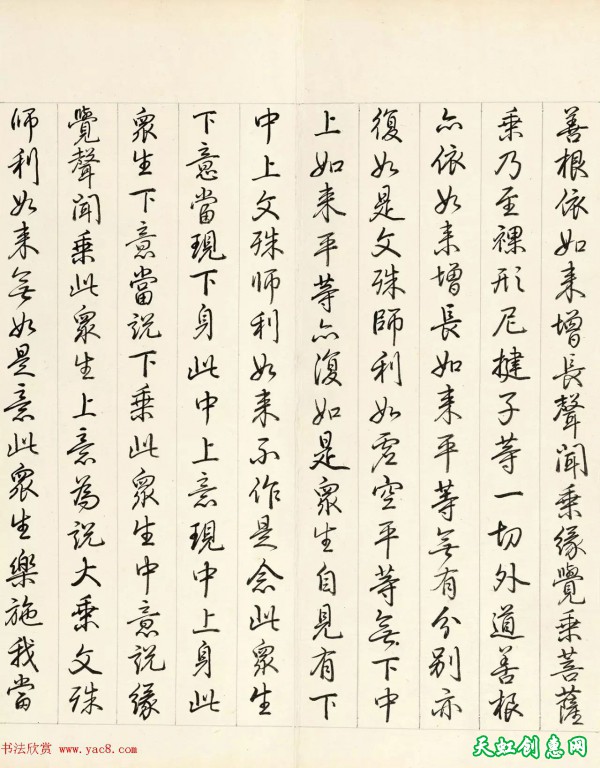 善根依如来增長聲聞乗緣覺乗菩薩
乗乃至裸形尼揵子等一切外道善根
亦依如来增長如来平等无有分别亦
復如是文殊師利如虚空平等无下中
上如来平等亦復如是眾生自見有下
中上文殊師利如来不作是念此眾生
下意當現下身此中上意現中上身此
眾生下意當説下乗此眾生中意説緣
覺聲聞乗此眾生上意為説大乗文殊
師利如来无如是意此眾生樂施我當
书法欣赏 www.yac8.com
天虹创惠网